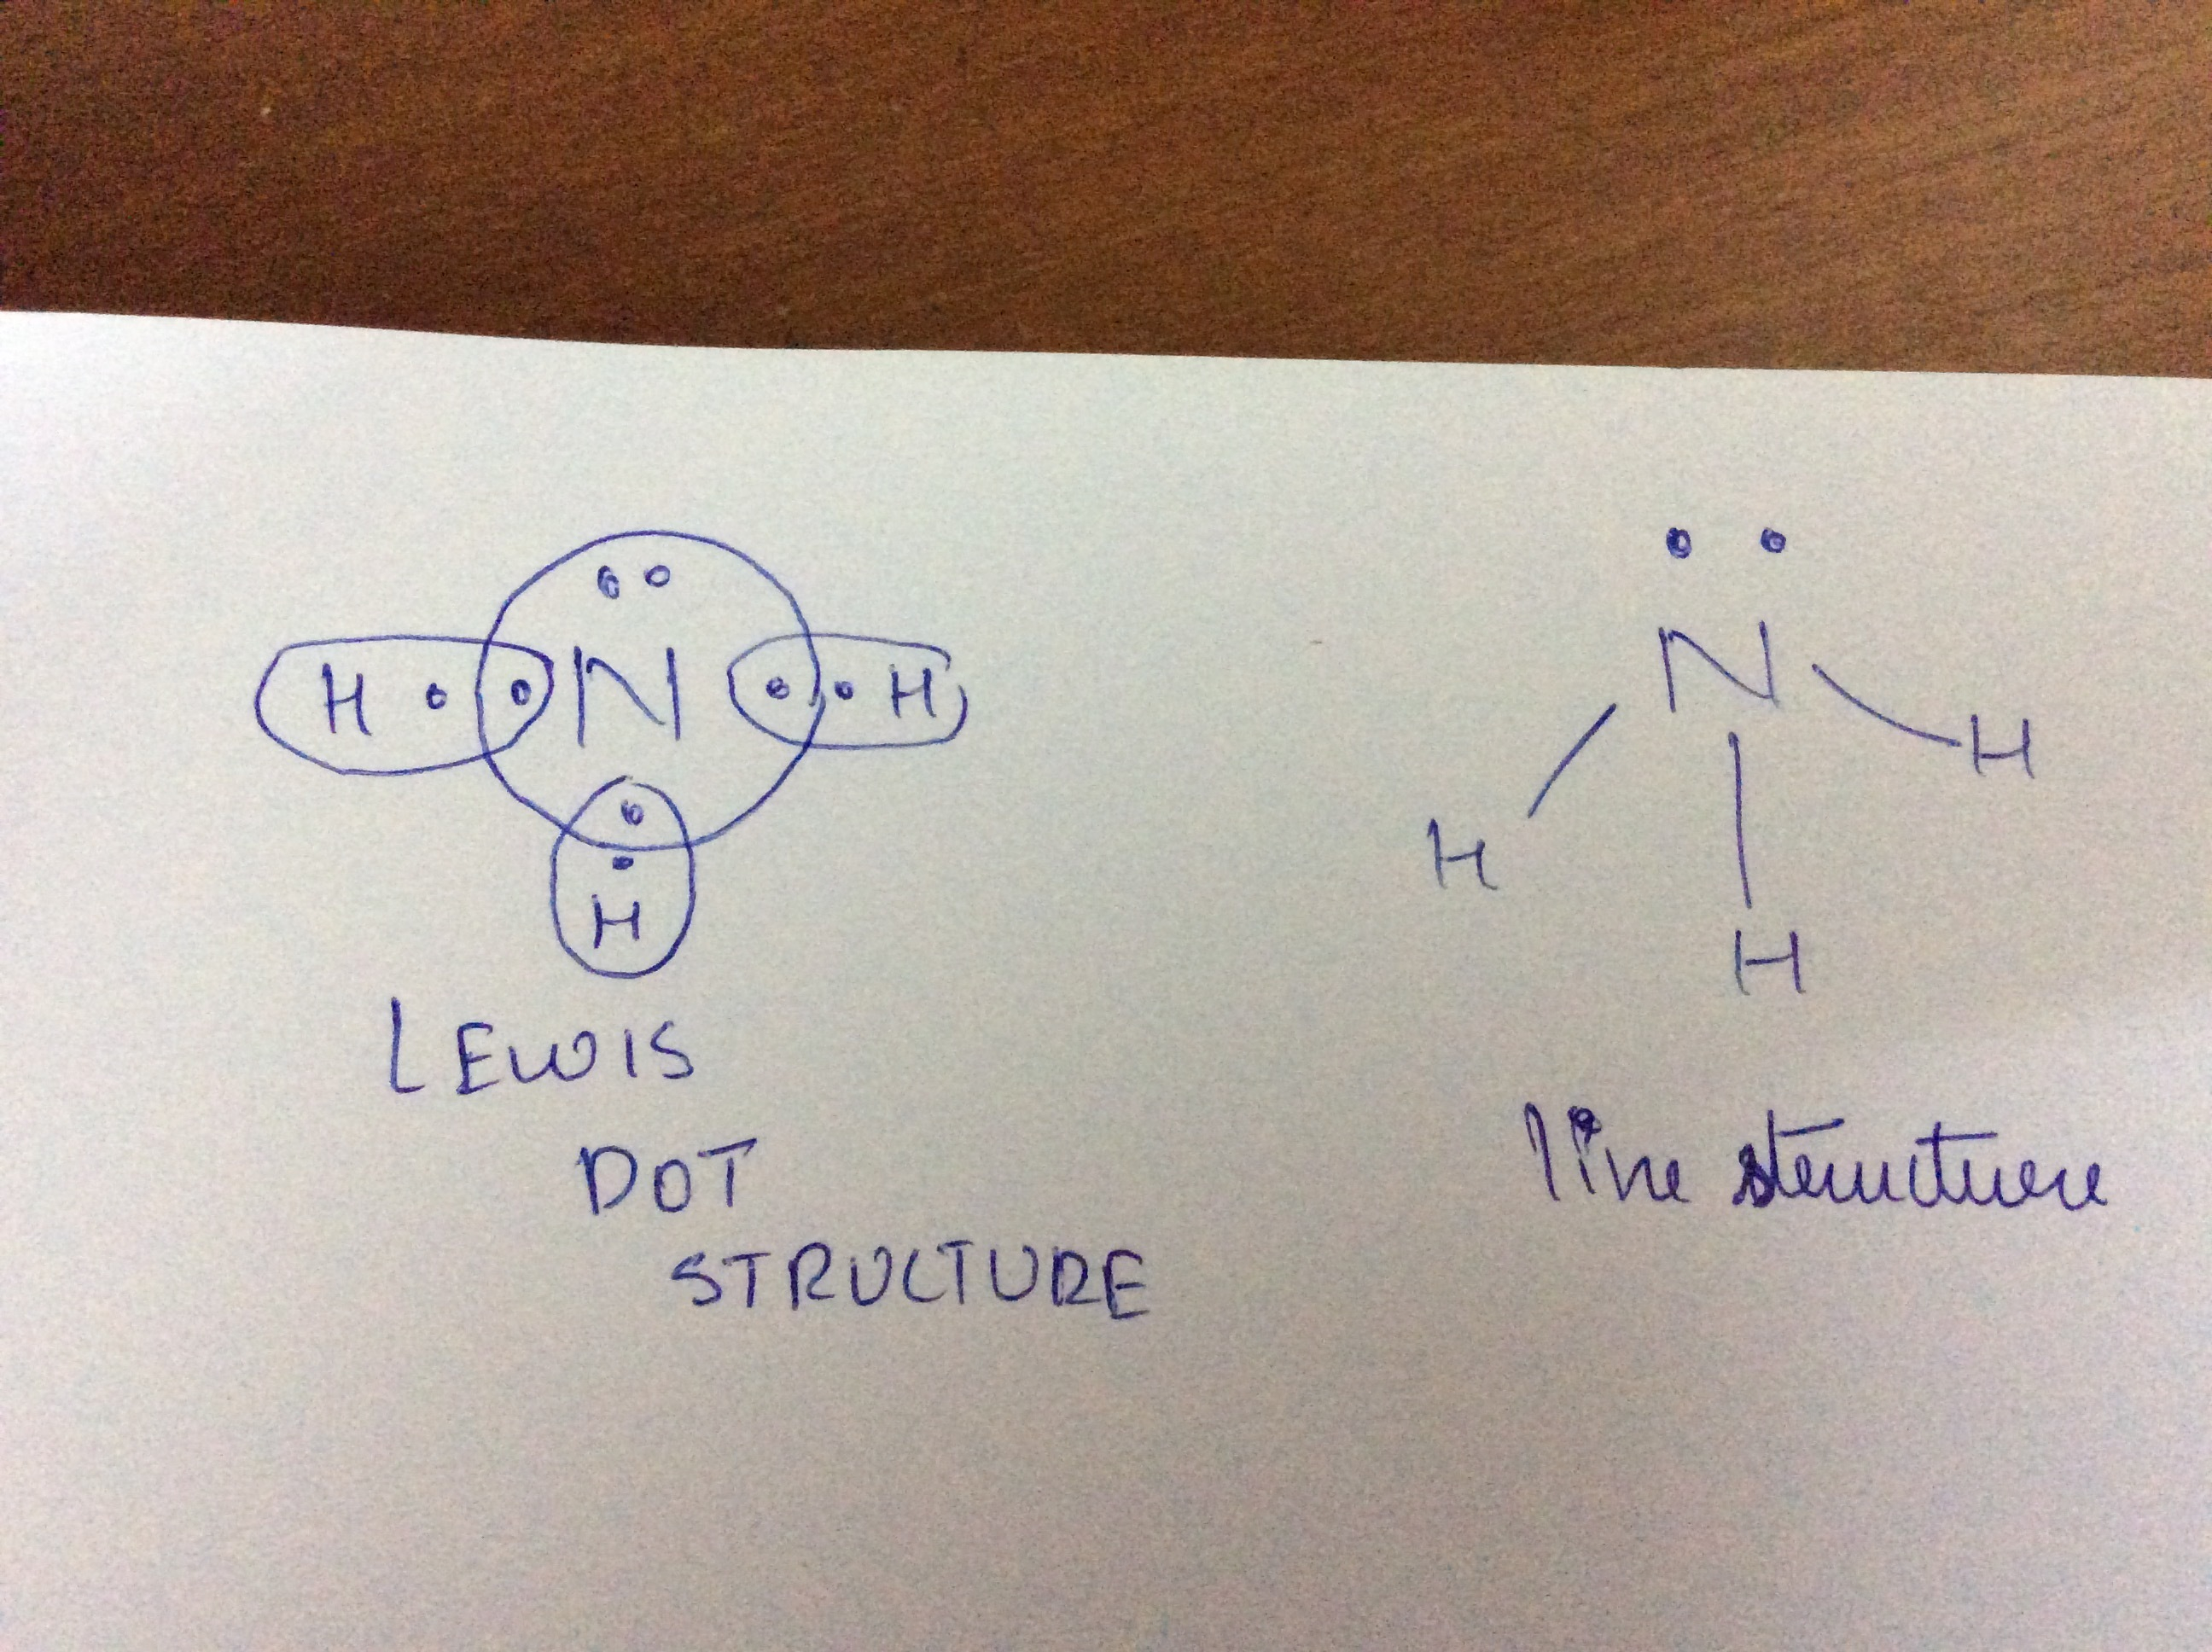 H N H
H
LEWIS
DOT
STRUCTURE
N
H
H
H
line structure